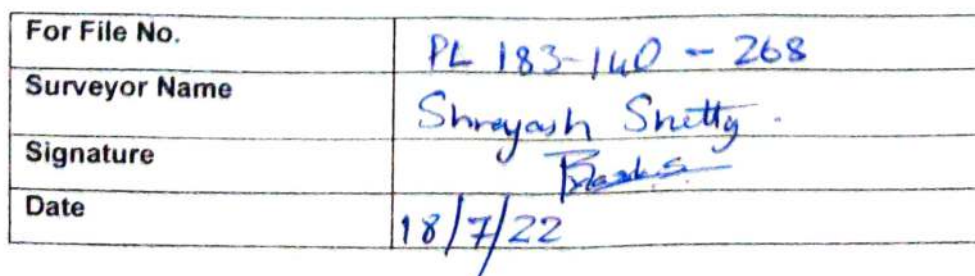 For File No. PL 183-140-268
Surveyor Name Shreyash Shetty.
Signature
Date 18/7/22